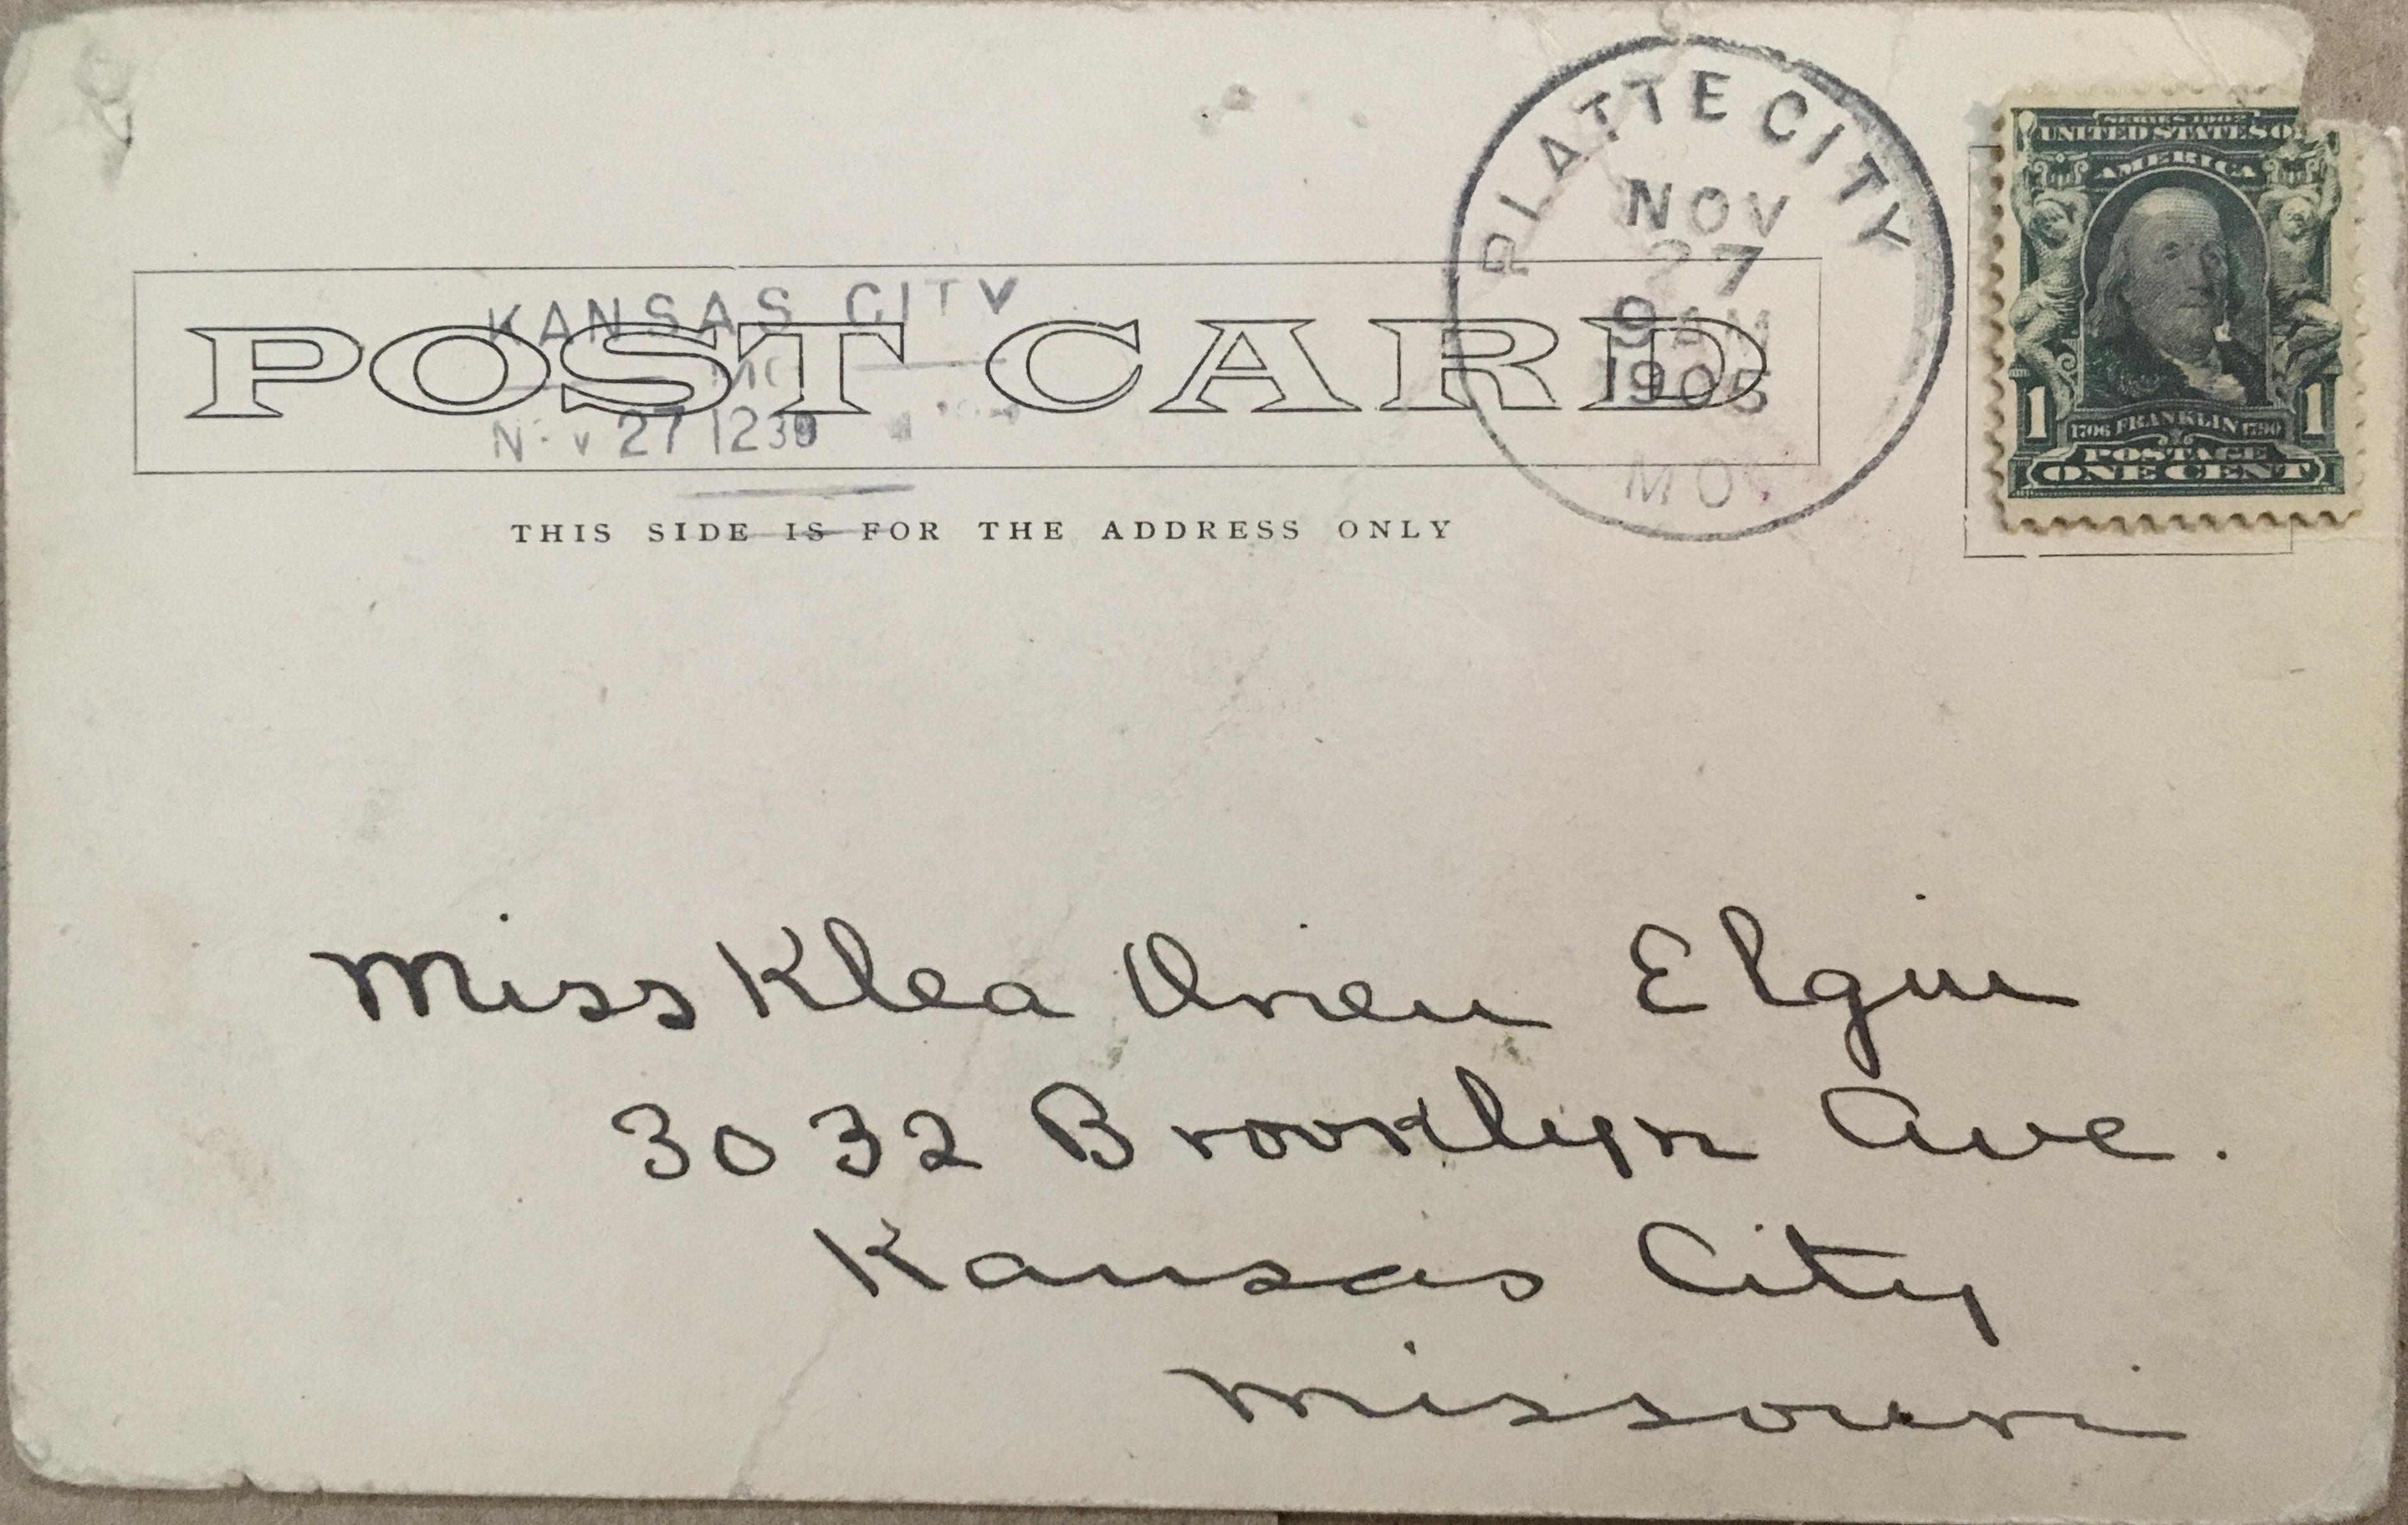 PLATTE CITY
NOV
27
9 AM
1905
MO.
SERIES 1902
UNITED STATES O
AMERICA
1 1
1706 FRANKLIN 1790
POSTAGE
ONE CENT
KANSAS CITY
MO
POST CARD
27 1230
THIS SIDE IS FOR THE ADDRESS ONLY
Miss Klea Orien Elgin
3032 Brooklyn Ave.
Kansas City
Missouri